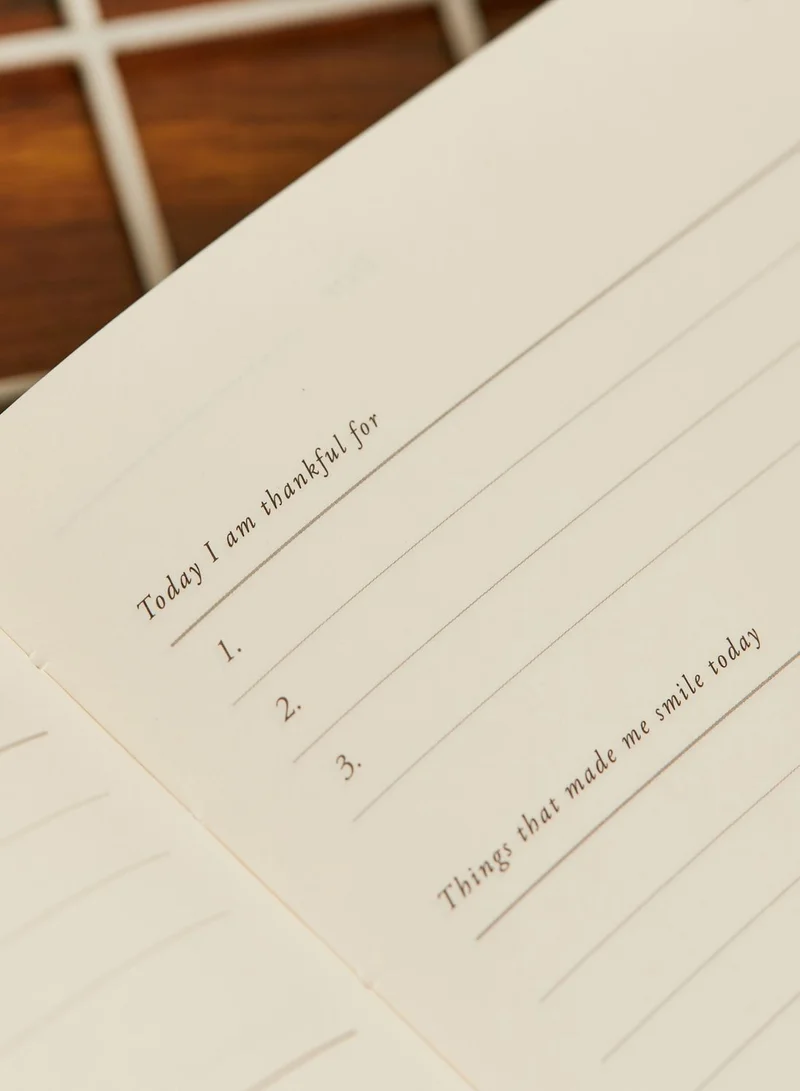 Today I am thankful for
1.
2.
3.
Things that made me smile today